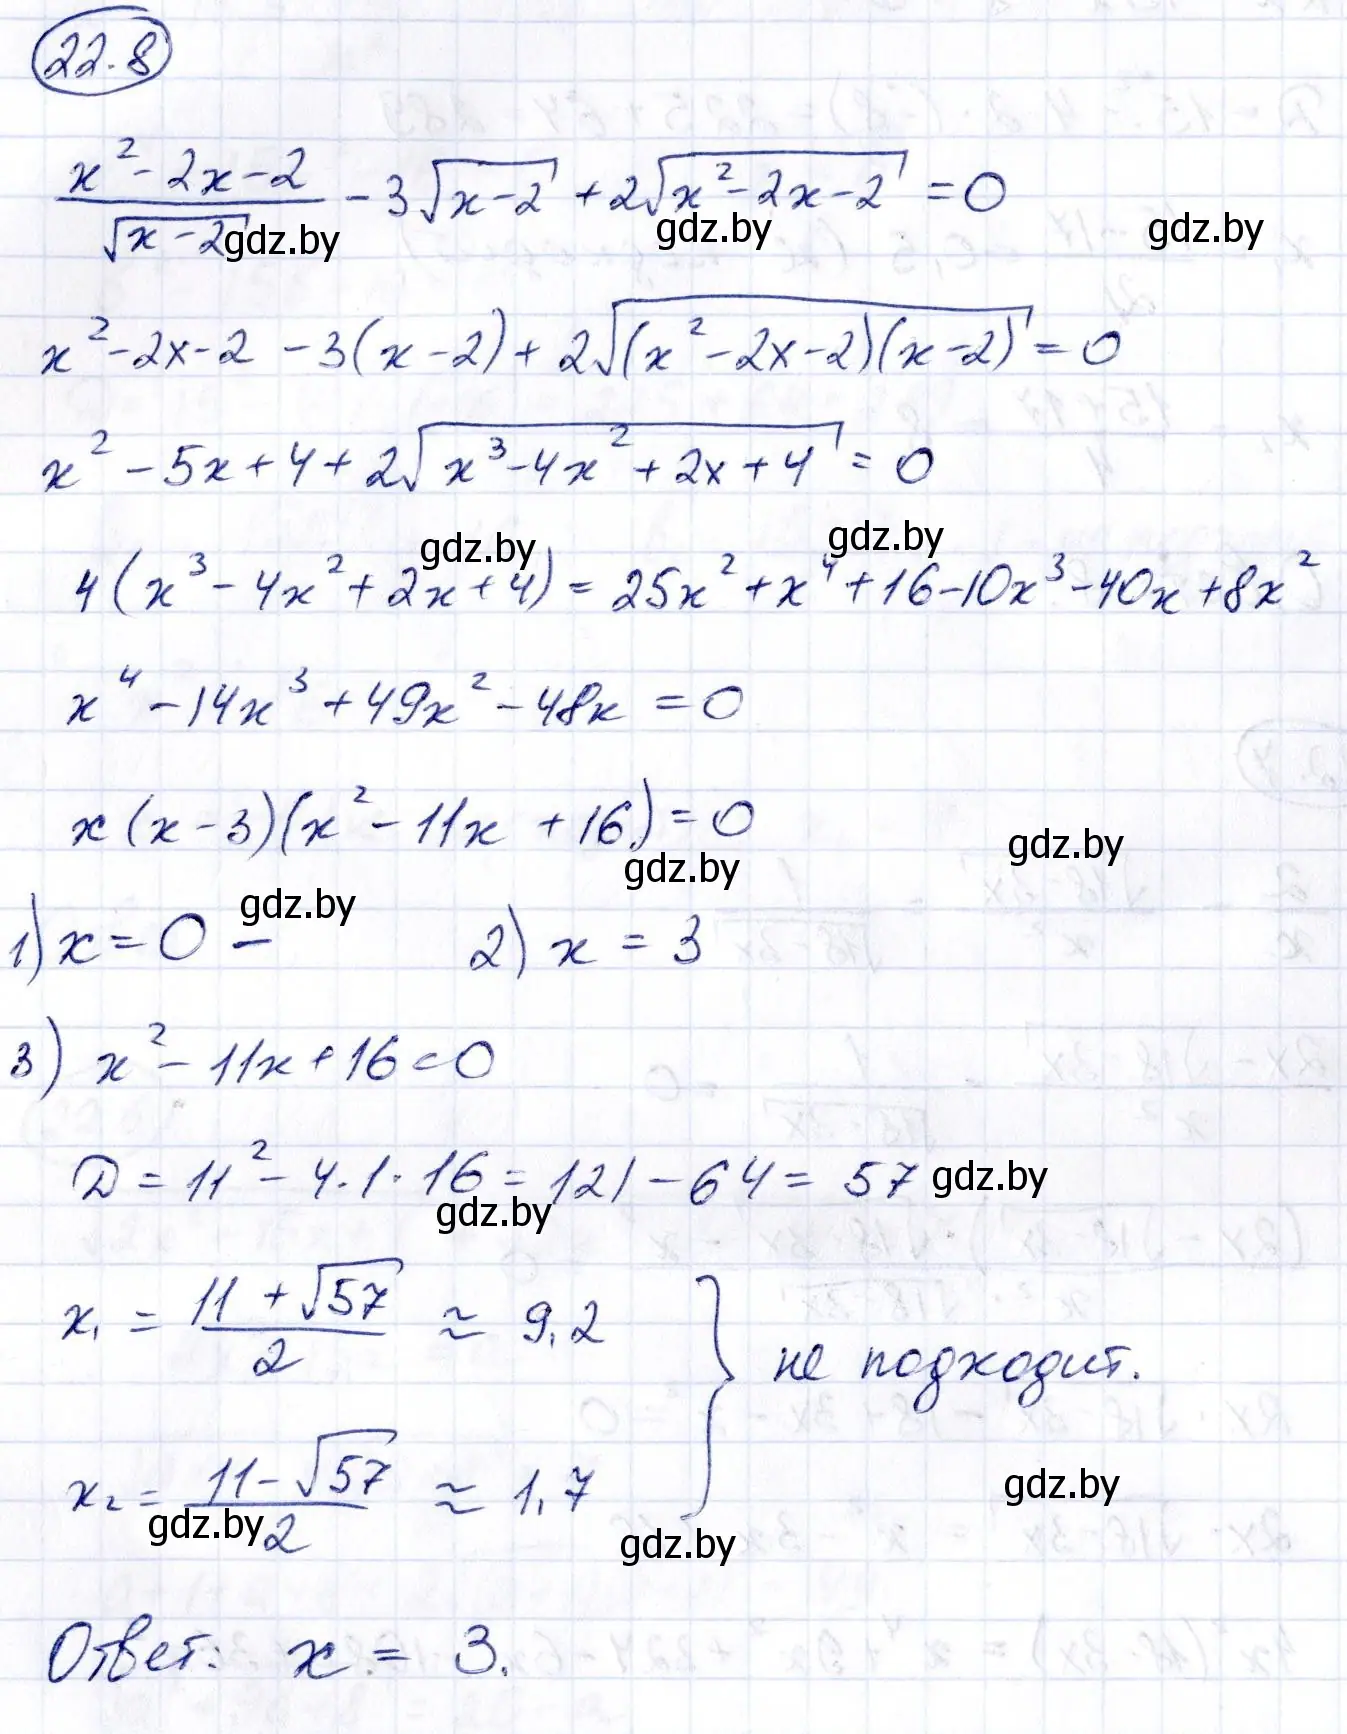 22.8
x²-2x-2 / √(x-2) - 3√(x-2) + 2√(x²-2x-2) = 0
gdz.by gdz.by gdz.by
x²-2x-2 -3(x-2)+2√((x²-2x-2)(x-2)) = 0
x²-5x+4+2√(x³-4x²+2x+4) = 0
gdz.by gdz.by
4(x³-4x²+2x+4) = 25x²+x⁴+16-10x³-40x+8x²
x⁴-14x³+49x²-48x = 0
x(x-3)(x²-11x+16) = 0
gdz.by gdz.by
gdz.by
1) x=0 - 2) x = 3
3) x²-11x+16=0
D = 11²-4·1·16 = 121-64 = 57 gdz.by
gdz.by
x₁ = (11+√57)/2 ≈ 9,2
не подходит.
x₂ = (11-√57)/2 ≈ 1,7
gdz.by gdz.by gdz.by
Ответ: x = 3.